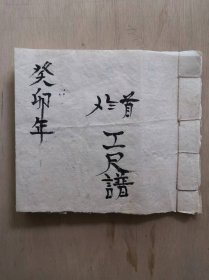 癸卯年
首
工尺譜